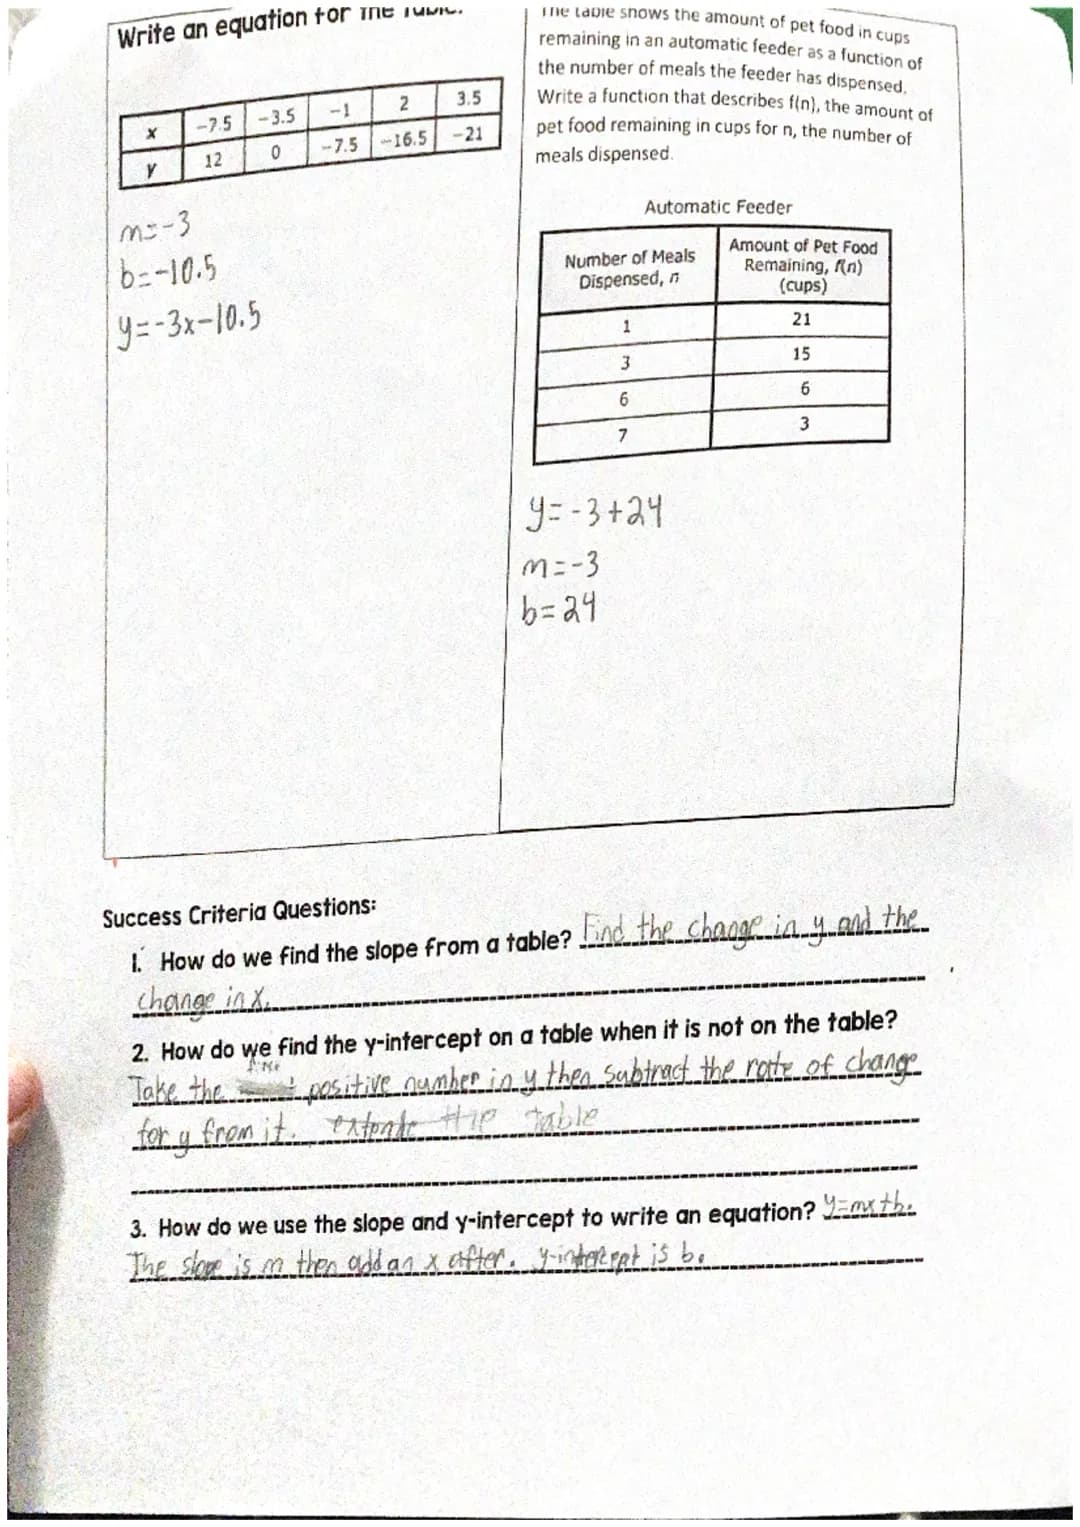 Write an equation for the table.
x -7.5 -3.5 -1 2 3.5
y 12 0 -7.5 -16.5 -21
m=-3
b=-10.5
y=-3x-10.5
The table shows the amount of pet food in cups
remaining in an automatic feeder as a function of
the number of meals the feeder has dispensed.
Write a function that describes f(n), the amount of
pet food remaining in cups for n, the number of
meals dispensed.
Automatic Feeder
Number of Meals
Dispensed, n
Amount of Pet Food
Remaining, f(n)
(cups)
1 21
3 15
6 6
7 3
y=-3+24
m=-3
b=24
Success Criteria Questions:
1. How do we find the slope from a table? Find the change in y and the
change in x.
2. How do we find the y-intercept on a table when it is not on the table?
Take the positive number in y then subtract the rate of change
for y from it. the table
3. How do we use the slope and y-intercept to write an equation? y=mx+b.
The slope is m then add an x after. y-intercept is b.